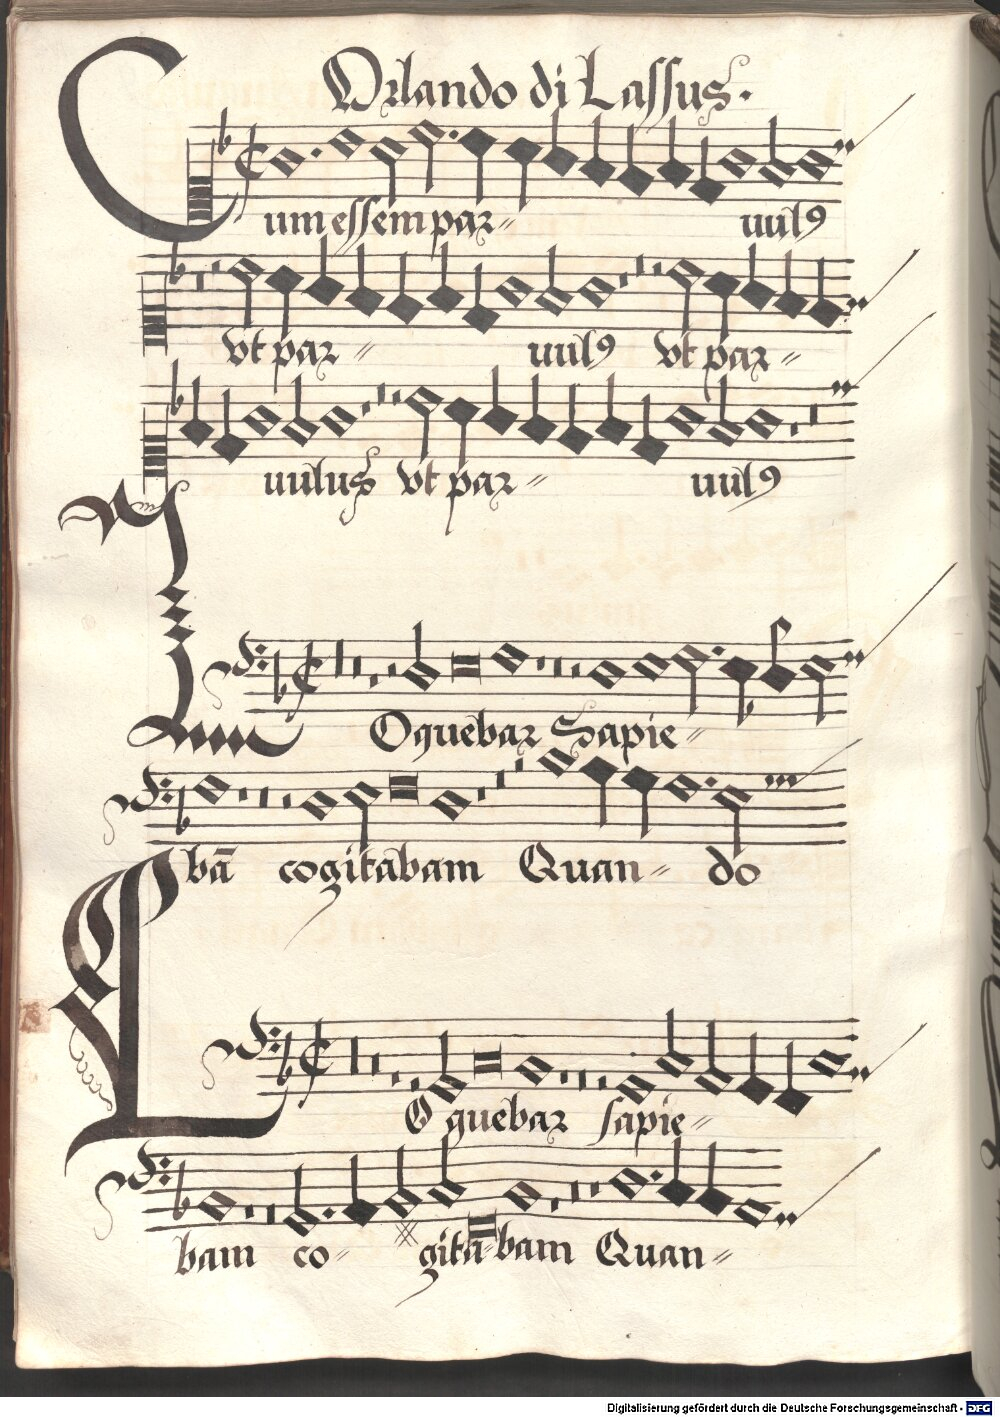 Orlando di Lassus.
Cum essem par- uulꝰ
vt par- uulꝰ vt par-
uulus vt par- uulꝰ
Loquebar Sapie-
bā cogitabam Quan- do
Loquebar sapie-
bam co- gita-bam Quan-
Digitalisierung gefördert durch die Deutsche Forschungsgemeinschaft - DFG